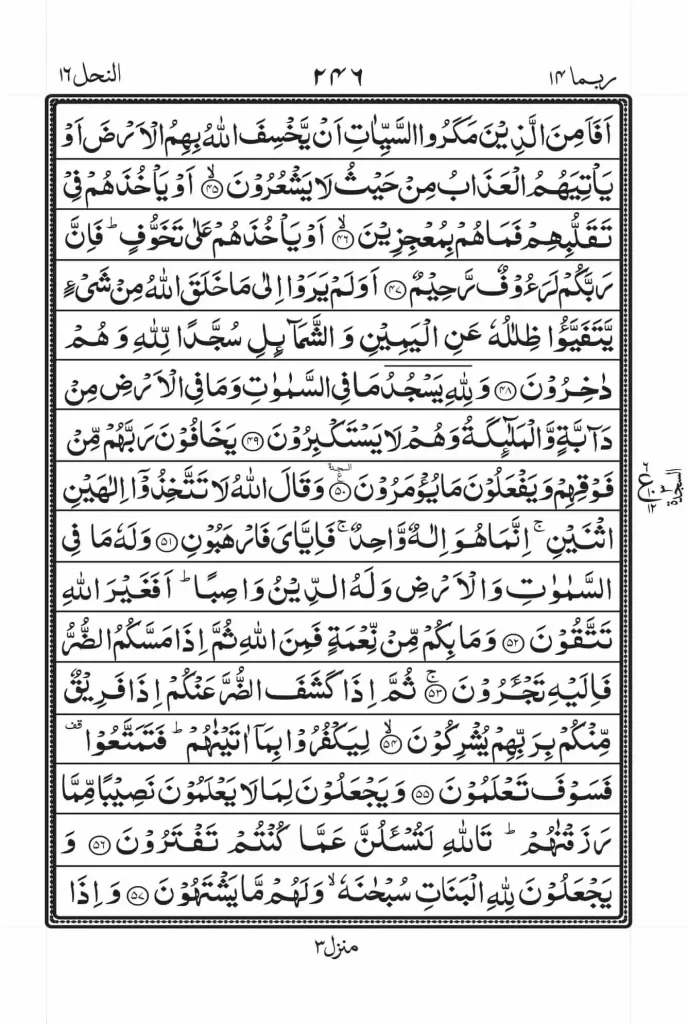 ربما ۱۴ ۲۴۶ النحل ۱۶
اَفَاَمِنَ الَّذِيْنَ مَكَرُوا السَّيِّاٰتِ اَنْ يَّخْسِفَ اللّٰهُ بِهِمُ الْاَرْضَ اَوْ
يَاْتِيَهُمُ الْعَذَابُ مِنْ حَيْثُ لَا يَشْعُرُوْنَ ۙ﴿۴۵﴾ اَوْ يَاْخُذَهُمْ فِيْ
تَقَلُّبِهِمْ فَمَا هُمْ بِمُعْجِزِيْنَ ۙ﴿۴۶﴾ اَوْ يَاْخُذَهُمْ عَلٰى تَخَوُّفٍ ؕ فَاِنَّ
رَبَّكُمْ لَرَءُوْفٌ رَّحِيْمٌ ﴿۴۷﴾ اَوَلَمْ يَرَوْا اِلٰى مَا خَلَقَ اللّٰهُ مِنْ شَيْءٍ
يَّتَفَيَّؤُا ظِلٰلُهٗ عَنِ الْيَمِيْنِ وَ الشَّمَآئِلِ سُجَّدًا لِّلّٰهِ وَ هُمْ
دٰخِرُوْنَ ﴿۴۸﴾ وَ لِلّٰهِ يَسْجُدُ مَا فِي السَّمٰوٰتِ وَمَا فِي الْاَرْضِ مِنْ
دَآبَّةٍ وَّ الْمَلٰٓئِكَةُ وَهُمْ لَا يَسْتَكْبِرُوْنَ ﴿۴۹﴾ يَخَافُوْنَ رَبَّهُمْ مِّنْ
فَوْقِهِمْ وَ يَفْعَلُوْنَ مَا يُؤْمَرُوْنَ ﴿۵۰﴾ السجدة وَقَالَ اللّٰهُ لَا تَتَّخِذُوْٓا اِلٰهَيْنِ
السجدة ۳
۶ ع ۱۰ ۱۲
اثْنَيْنِ ۚ اِنَّمَا هُوَ اِلٰهٌ وَّاحِدٌ ۚ فَاِيَّايَ فَارْهَبُوْنِ ﴿۵۱﴾ وَلَهٗ مَا فِي
السَّمٰوٰتِ وَ الْاَرْضِ وَ لَهُ الدِّيْنُ وَاصِبًا ؕ اَفَغَيْرَ اللّٰهِ
تَتَّقُوْنَ ﴿۵۲﴾ وَمَا بِكُمْ مِّنْ نِّعْمَةٍ فَمِنَ اللّٰهِ ثُمَّ اِذَا مَسَّكُمُ الضُّرُّ
فَاِلَيْهِ تَجْـَٔرُوْنَ ۚ﴿۵۳﴾ ثُمَّ اِذَا كَشَفَ الضُّرَّ عَنْكُمْ اِذَا فَرِيْقٌ
مِّنْكُمْ بِرَبِّهِمْ يُشْرِكُوْنَ ۙ﴿۵۴﴾ لِيَكْفُرُوْا بِمَاۤ اٰتَيْنٰهُمْ ؕ فَتَمَتَّعُوْا قف
فَسَوْفَ تَعْلَمُوْنَ ﴿۵۵﴾ وَ يَجْعَلُوْنَ لِمَا لَا يَعْلَمُوْنَ نَصِيْبًا مِّمَّا
رَزَقْنٰهُمْ ؕ تَاللّٰهِ لَتُسْـَٔلُنَّ عَمَّا كُنْتُمْ تَفْتَرُوْنَ ﴿۵۶﴾ وَ
يَجْعَلُوْنَ لِلّٰهِ الْبَنَاتِ سُبْحٰنَهٗ ۙ وَلَهُمْ مَّا يَشْتَهُوْنَ ﴿۵۷﴾ وَ اِذَا
منزل ۳